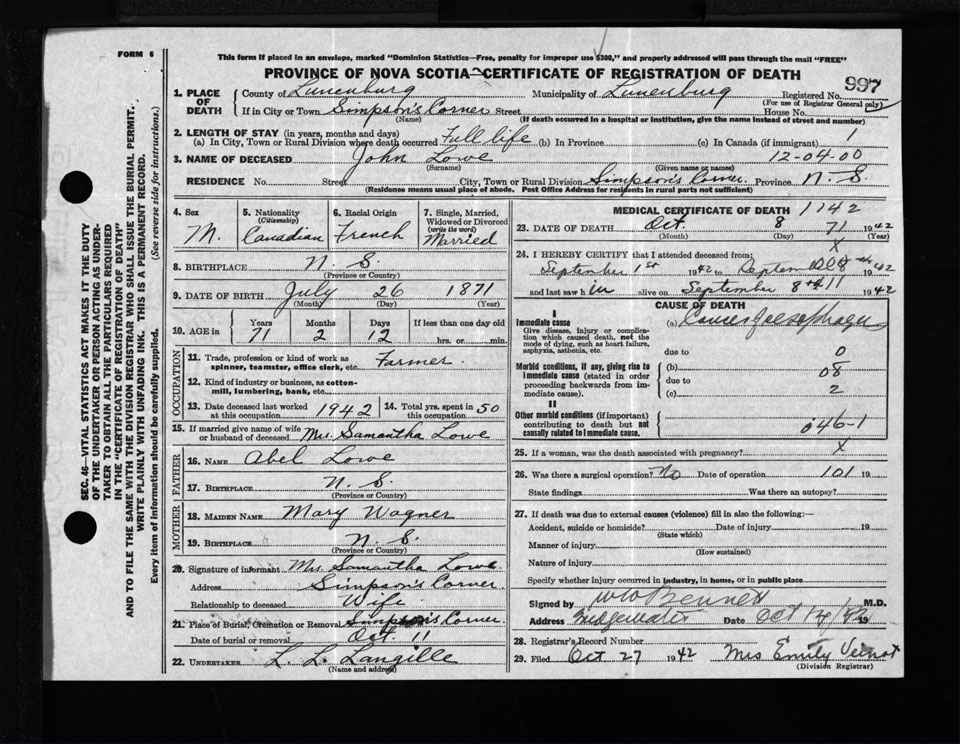 FORM 6
This form if placed in an envelope, marked "Dominion Statistics—Free, penalty for improper use $300," and properly addressed will pass through the mail "FREE"
PROVINCE OF NOVA SCOTIA—CERTIFICATE OF REGISTRATION OF DEATH
997
1. PLACE OF DEATH
County of Lunenburg Municipality of Lunenburg Registered No.
(For use of Registrar General only)
If in City or Town Simpson's Corner Street House No.
(Name) (If death occurred in a hospital or institution, give the name instead of street and number)
2. LENGTH OF STAY (in years, months and days)
(a) In City, Town or Rural Division where death occurred Full life (b) In Province (c) In Canada (if immigrant) 1
3. NAME OF DECEASED John Lowe 12-04-00
(Surname) (Given name or names)
RESIDENCE No. Street City, Town or Rural Division Simpson's Corner Province N. S.
(Residence means usual place of abode. Post Office Address for residents in rural parts not sufficient)
4. Sex
M.
5. Nationality
(Citizenship)
Canadian
6. Racial Origin
French
7. Single, Married, Widowed or Divorced
(write the word)
Married
8. BIRTHPLACE N. S.
(Province or Country)
9. DATE OF BIRTH July 26 1871
(Month) (Day) (Year)
10. AGE in
Years Months Days If less than one day old
71 2 12 hrs. or min.
OCCUPATION
11. Trade, profession or kind of work as spinner, teamster, office clerk, etc. Farmer.
12. Kind of industry or business, as cotton-mill, lumbering, bank, etc.
13. Date deceased last worked at this occupation 1942
14. Total yrs. spent in this occupation 50
15. If married give name of wife or husband of deceased Mrs. Samantha Lowe
FATHER
16. NAME Abel Lowe
17. BIRTHPLACE N. S.
(Province or Country)
MOTHER
18. MAIDEN NAME Mary Wagner
19. BIRTHPLACE N. S.
(Province or Country)
20. Signature of informant Mrs. Samantha Lowe
Address Simpson's Corner
Relationship to deceased Wife
21. Place of Burial, Cremation or Removal Simpson's Corner
Date of burial or removal Oct. 11
22. UNDERTAKER L. L. Langille
(Name and address)
MEDICAL CERTIFICATE OF DEATH 1142
23. DATE OF DEATH Oct. 8 71 1942
(Month) (Day) (Year)
X
24. I HEREBY CERTIFY that I attended deceased from:
September 1st 1942 to 1942
and last saw h im alive on September 8th 11 1942
CAUSE OF DEATH
I
Immediate cause
Give disease, injury or complication which caused death, not the mode of dying, such as heart failure, asphyxia, asthenia, etc.
(a) Cancer of esophagus
due to 0
Morbid conditions, if any, giving rise to immediate cause (stated in order proceeding backwards from immediate cause)
(b) 08
due to
(c) 2
II
Other morbid conditions (if important) contributing to death but not causally related to immediate cause.
046-1
25. If a woman, was the death associated with pregnancy? X
26. Was there a surgical operation? No Date of operation 101 19
State findings Was there an autopsy?
27. If death was due to external causes (violence) fill in also the following:—
Accident, suicide or homicide? Date of injury 19
(State which)
Manner of injury
(How sustained)
Nature of injury
Specify whether injury occurred in industry, in home, or in public place
Signed by W W Bennett M.D.
Address Bridgewater Date Oct 19
28. Registrar's Record Number
29. Filed Oct 27 1942 Mrs Emily
(Division Registrar)
SEC. 46—VITAL STATISTICS ACT MAKES IT THE DUTY
OF THE UNDERTAKER OR PERSON ACTING AS UNDER-
TAKER TO OBTAIN ALL THE PARTICULARS REQUIRED
IN THE "CERTIFICATE OF REGISTRATION OF DEATH"
AND TO FILE THE SAME WITH THE DIVISION REGISTRAR WHO SHALL ISSUE THE BURIAL PERMIT.
WRITE PLAINLY WITH UNFADING INK. THIS IS A PERMANENT RECORD.
Every item of information should be carefully supplied. (See reverse side for instructions.)